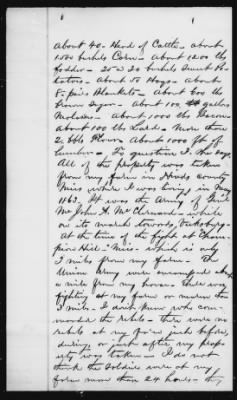 about 40 Head of Cattle - about
1500 bushels Corn - about 1200 lbs
fodder - 20 bushels Sweet Po-
tatoes - about 50 Hogs - about
8 - pairs Blankets - about 600 lbs
brown Sugar - about 100 gallons
Molasses - about 1000 lbs Bacon -
about 100 lbs Lard - More than
2 bbls Flour - about 1000 ft of
Lumber - To question he says
All of the property was taken
from my farm in Hinds County
Miss where I was living, in May
1863. It was the Army of Genl
Mc John A. Mc Clernand - while
on its march towards Vicksburg -
At the time of the fight at Cham-
pion Hill - Miss - which is only
3 miles from my farm - The
Union Army were encamped
a mile from my house - There was
fighting at my farm or nearer than
3 miles - I don't know who com-
manded the rebels - there were no
rebels at my place just before,
during or just after my prop-
erty was taken - I do not
think the Soldiers were at my
farm more than 24 hours - they